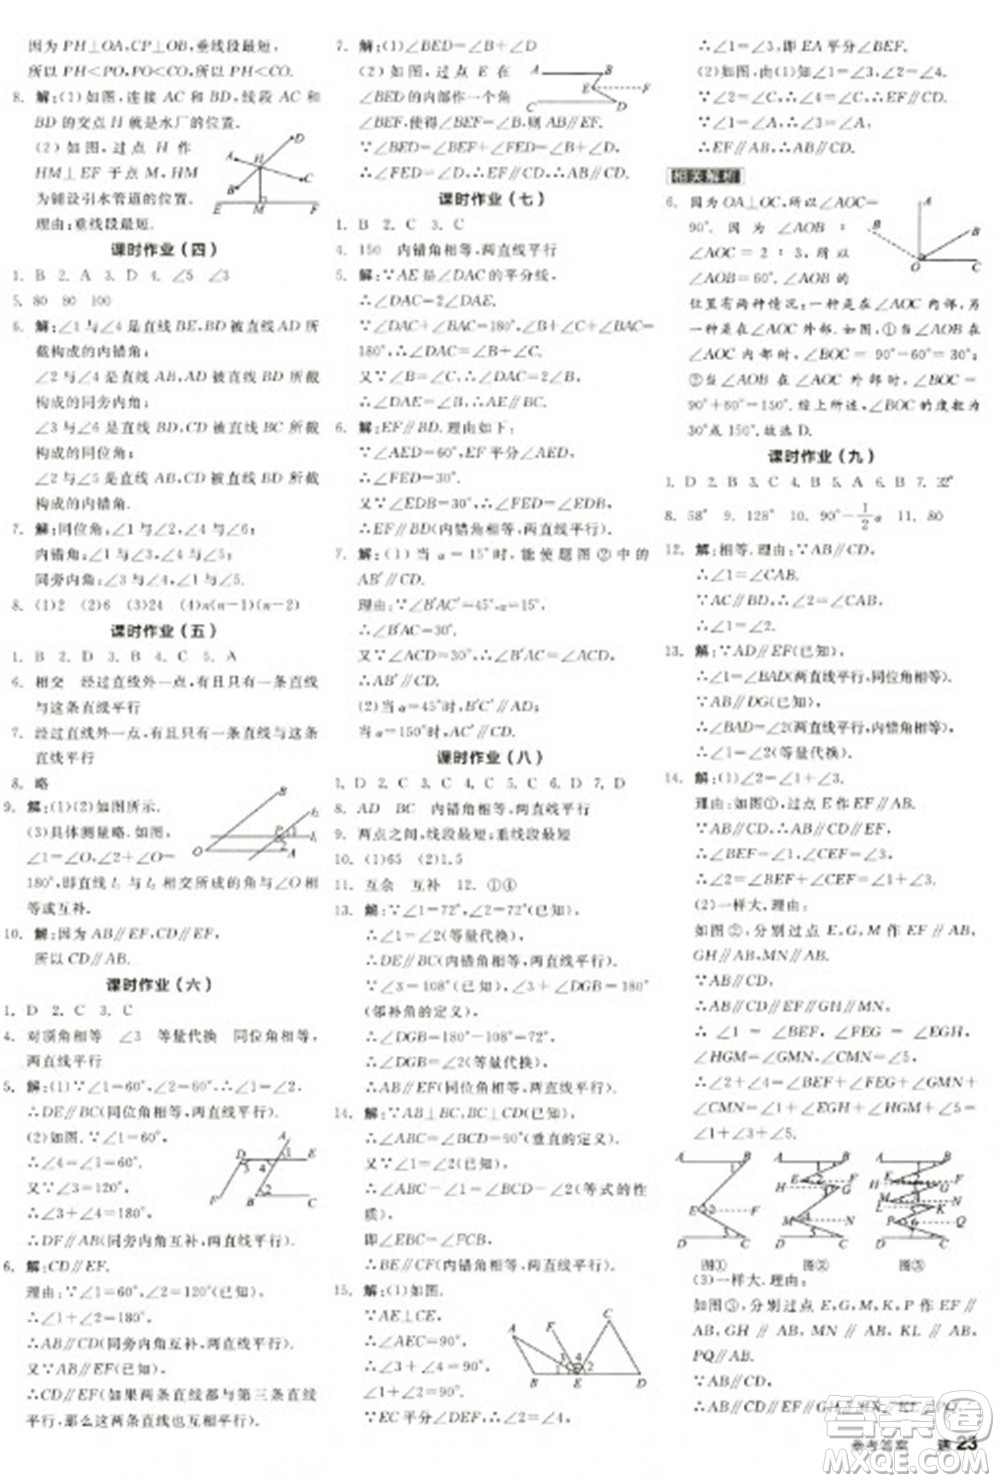 因为 PH⊥OA,CP⊥OB,垂线段最短,
所以 PH<PO,PO<OC,所以 PH<OC.
8. 解:(1)如图,连接 AC 和 BD,线段 AC 和
BD 的交点 H 就是水厂的位置.
(2) 如图,过点 H 作
HM⊥EF 于点 M,HM
为铺设引水管道的位置.
理由:垂线段最短.
课时作业(四)
1. B 2. A 3. D 4. ∠5 ∠3
5. 80 80 100
6. 解:∠1 与∠4 是直线 BE,BD 被直线 AD 所
截构成的内错角;
∠2 与∠4 是直线 AC,BD 被直线 AD 所截
构成的同旁内角;
∠3 与∠6 是直线 AC,BD 被直线 CD 所截
构成的同位角;
∠2 与∠5 是直线 AB,CD 被直线 AC 所截
构成的内错角.
7. 解:同位角:∠1 与∠2,∠6 与∠5;
内错角:∠1 与∠3,∠6 与∠4;
同旁内角:∠3 与∠4,∠1 与∠5.
8. (1)2 (2)6 (3)24 (4)n(n−1)(n−2)
课时作业(五)
1. B 2. D 3. C 4. C 5. A
6. 相交 经过直线外一点,有且只有一条直线
与这条直线平行
7. 经过直线外一点,有且只有一条直线与这条
直线平行
8. 略
9. 解:(1)(2)如图所示.
(3)具体测量略.如图,
∠1=∠O,∠2+∠O=
180°,即直线 l₁ 与 l₂ 相交所成的角与∠O 相
等或互补.
10. 解:因为 AB∥EF,CD∥EF,
所以 CD∥AB.
课时作业(六)
1. D 2. C 3. C
4. 对顶角相等 ∠3 等量代换 同位角相等,
两直线平行
5. 解:(1)∵∠1=60°,∠2=60°,∴∠1=∠2,
∴DE∥BC(同位角相等,两直线平行).
(2)如图.∵∠1=60°,
∴∠4=∠1=60°.
又∵∠3=120°,
∴∠3+∠4=180°,
∴DF∥BE(同旁内角互补,两直线平行).
6. 解:CD∥EF.
理由:∵∠1=60°,∠2=120°(已知),
∴∠1+∠2=180°,
∴AB∥CD(同旁内角互补,两直线平行).
又∵AB∥EF(已知),
∴CD∥EF(如果两条直线都与第三条直线
平行,那么这两条直线也互相平行).
7. 解:(1)∠BED=∠B+∠D
(2) 如图,过点 E 在
∠BED 的内部作一个角
∠BEF,使得∠BEF=∠B,则 EF∥AB.
∵∠BED=∠BEF+∠FED=∠B+∠D,
∴∠FED=∠D,∴EF∥CD,∴AB∥CD.
课时作业(七)
1. B 2. C 3. C
4. 150 内错角相等,两直线平行
5. 解:∵AE 是∠DAC 的平分线,
∴∠DAC=2∠DAE.
∵∠DAC+∠BAC=180°,∠B+∠C+∠BAC=
180°,∴∠DAC=∠B+∠C.
又∵∠B=∠C,∴∠DAC=2∠B,
∴∠DAE=∠B,∴AE∥BC.
6. 解:EF∥BD.理由如下:
∵∠AED=60°,EF 平分∠AED,
∴∠FED=30°.
又∵∠EDB=30°,∴∠FED=∠EDB,
∴EF∥BD(内错角相等,两直线平行).
7. 解:(1) 当 α=15°时,能使题图②中的
AB′∥CD.
理由:∵∠B′AC′=45°,α=15°,
∴∠B′AC=30°.
又∵∠C=30°,∴∠B′AC=∠C,
∴AB′∥CD.
(2)当 α=45°时,B′C′∥CD;
当 α=150°时,AC′∥CD.
课时作业(八)
1. D 2. C 3. C 4. C 5. C 6. D 7. D
8. AD BC 内错角相等,两直线平行
9. 两点之间,线段最短;垂线段最短
10. (1)65 (2)1.5
11. 互余 互补 12. ①④
13. 解:∵∠1=72°,∠2=72°(已知),
∴∠1=∠2(等量代换),
∴DE∥BC(内错角相等,两直线平行).
∵∠3=108°(已知),∠3+∠DGB=180°
(邻补角的定义),
∴∠DGB=180°−108°=72°,
∴∠DGB=∠2(等量代换),
∴AB∥EF(同位角相等,两直线平行).
14. 解:∵AB⊥BC,BC⊥CD(已知),
∴∠ABC=∠BCD=90°(垂直的定义).
又∵∠1=∠2(已知),
∴∠ABC−∠1=∠BCD−∠2(等式的性
质),
即∠EBC=∠BCF,
∴BE∥CF(内错角相等,两直线平行).
15. 解:(1)如图.
∵AE⊥CE,
∴∠AEC=90°,
∴∠3+∠4=90°,
∴∠1+∠2=90°.
又∵EC 平分∠DEF,∴∠4=∠2,
∴∠1=∠3,即 EA 平分∠BEF.
(2)由(1)知∠1=∠3,∠2=∠4.
又∵∠2=∠C,∴∠4=∠C,∴EF∥CD.
∵∠1=∠A,∴∠3=∠A,
∴EF∥AB,∴AB∥CD.
相关解析
6. 因为 OA⊥OC,所以∠AOC=
90°. 因 为 ∠AOB :
∠AOC = 2 : 3,所以
∠AOB=60°.∠AOB 的
位置有两种情况:一种是在∠AOC 内部,另
一种是在∠AOC 外部.如图,①当∠AOB 在
∠AOC 内部时,∠BOC = 90°−60°=30°;
②当∠AOB 在∠AOC 外部时,∠BOC=
90°+60°=150°.综上所述,∠BOC 的度数为
30°或 150°.故选 D.
课时作业(九)
1. D 2. B 3. B 4. B 5. A 6. B 7. 32°
8. 58° 9. 128° 10. 90°−½α 11. 80
12. 解:相等.理由:∵AB∥CD,
∴∠1=∠CAB.
∵AC∥BD,∴∠2=∠CAB,
∴∠1=∠2.
13. 解:∵AD∥EF(已知),
∴∠1=∠BAD(两直线平行,同位角相等).
∵AB∥DG(已知),
∴∠BAD=∠2(两直线平行,内错角相等),
∴∠1=∠2(等量代换).
14. 解:(1)∠2=∠1+∠3.
理由:如图①,过点 E 作 EF∥AB.
∵AB∥CD,∴AB∥CD∥EF,
∴∠BEF=∠1,∠CEF=∠3,
∴∠2=∠BEF+∠CEF=∠1+∠3.
(2)一样大.理由:
如图②,分别过点 E,G,M 作 EF∥AB,
GH∥AB,MN∥AB.
∵AB∥CD,
∴AB∥CD∥EF∥GH∥MN,
∴∠1 = ∠BEF, ∠FEG = ∠EGH,
∠HGM=∠GMN,∠CMN=∠5,
∴∠2+∠4=∠BEF+∠FEG+∠GMN+
∠CMN=∠1+∠EGH+∠HGM+∠5=
∠1+∠3+∠5.
图① 图② 图③
(3)一样大.理由:
如图③,分别过点 E,G,M,K,P 作 EF∥
AB,GH∥AB,MN∥AB,KL∥AB,
PQ∥AB.
参考答案
23
答案圈
MXQE.COM